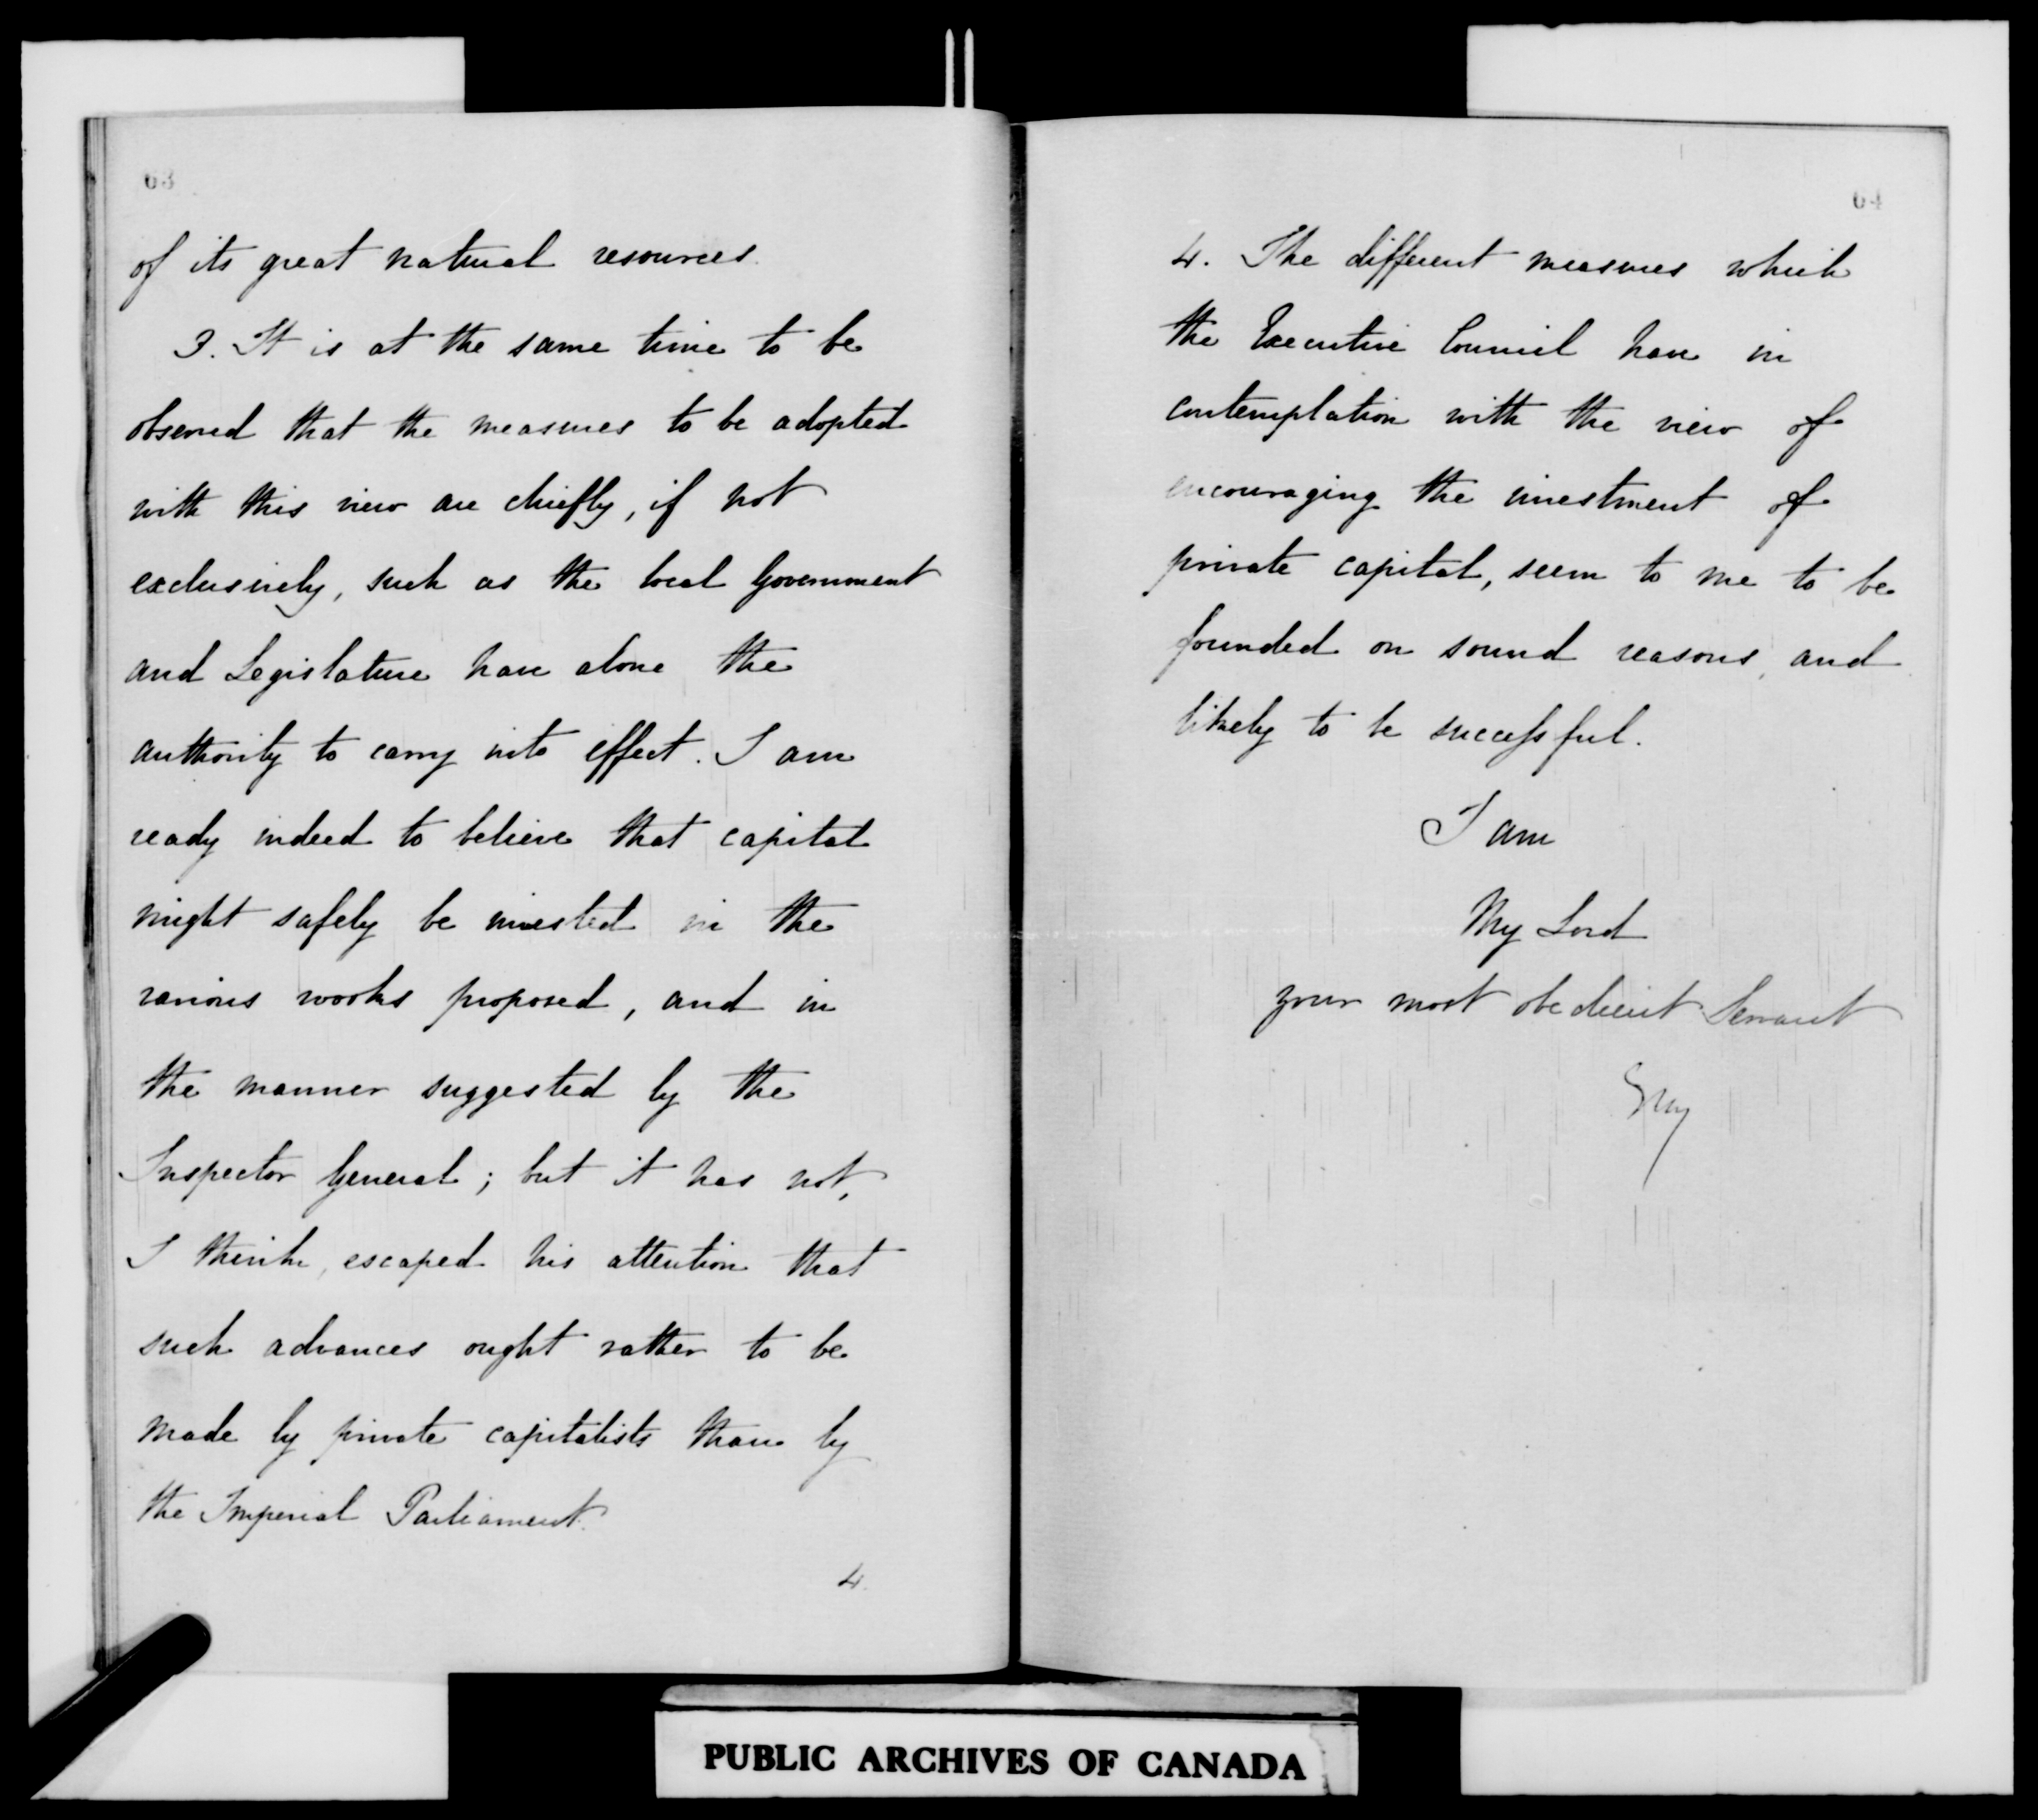 63
of its great natural resources.
3. It is at the same time to be
observed that the measures to be adopted
with this view are chiefly, if not
exclusively, such as the local Government
and Legislature have alone the
authority to carry into effect. I am
ready indeed to believe that capital
might safely be invested in the
various works proposed, and in
the manner suggested by the
Inspector General; but it has not,
I think, escaped his attention that
such advances ought rather to be
made by private capitalists than by
the Imperial Parliament.
4.
64
4. The different measures which
the Executive Council have in
contemplation with the view of
encouraging the investment of
private capital, seem to me to be
founded on sound reasons, and
likely to be successful.
I am
My Lord
your most obedient Servant
Grey
PUBLIC ARCHIVES OF CANADA